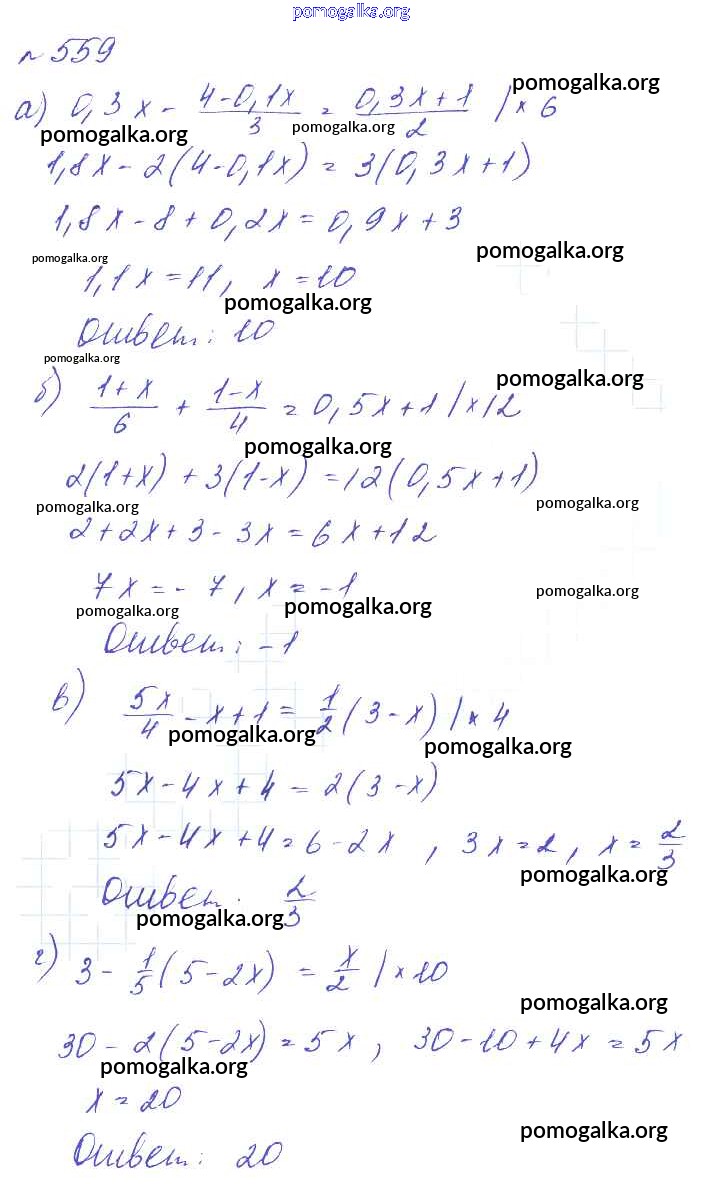 pomogalka.org
№ 559
а) 0,3x - (4-0,1x)/3 = (0,3x+1)/2 |×6
pomogalka.org
pomogalka.org
pomogalka.org
1,8x - 2(4-0,1x) = 3(0,3x+1)
1,8x - 8 + 0,2x = 0,9x + 3
pomogalka.org
pomogalka.org
1,1x = 11, x = 10
pomogalka.org
Ответ: 10
pomogalka.org
pomogalka.org
б) (1+x)/6 + (1-x)/4 = 0,5x+1 |×12
pomogalka.org
2(1+x) + 3(1-x) = 12(0,5x+1)
pomogalka.org
pomogalka.org
2+2x+3-3x = 6x+12
7x = -7, x = -1
pomogalka.org
pomogalka.org
pomogalka.org
Ответ: -1
в) 5x/4 - x+1 = 1/2 (3-x) |×4
pomogalka.org
pomogalka.org
5x-4x+4 = 2(3-x)
5x-4x+4 = 6-2x , 3x=2, x = 2/3
pomogalka.org
Ответ. 2/3
pomogalka.org
г) 3 - 1/5 (5-2x) = x/2 |×10
pomogalka.org
30 - 2(5-2x) = 5x , 30-10+4x = 5x
pomogalka.org
x = 20
pomogalka.org
Ответ: 20